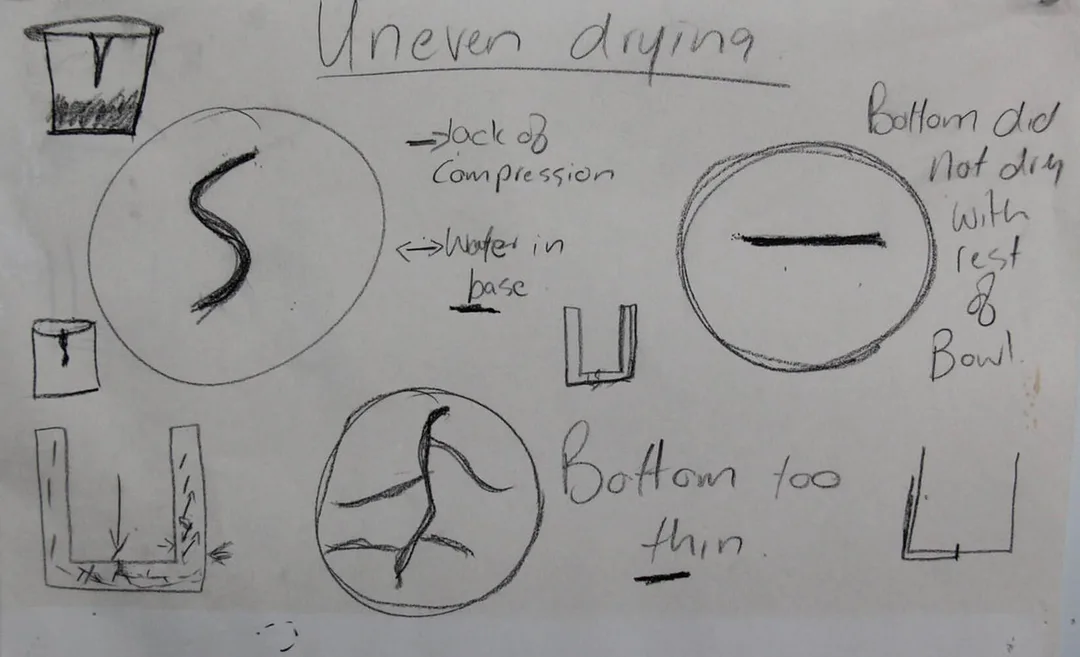 Uneven drying
→ lack of
compression
↔ Water in
base
Bottom did
not dry
with
rest
of
Bowl.
Bottom too
thin.